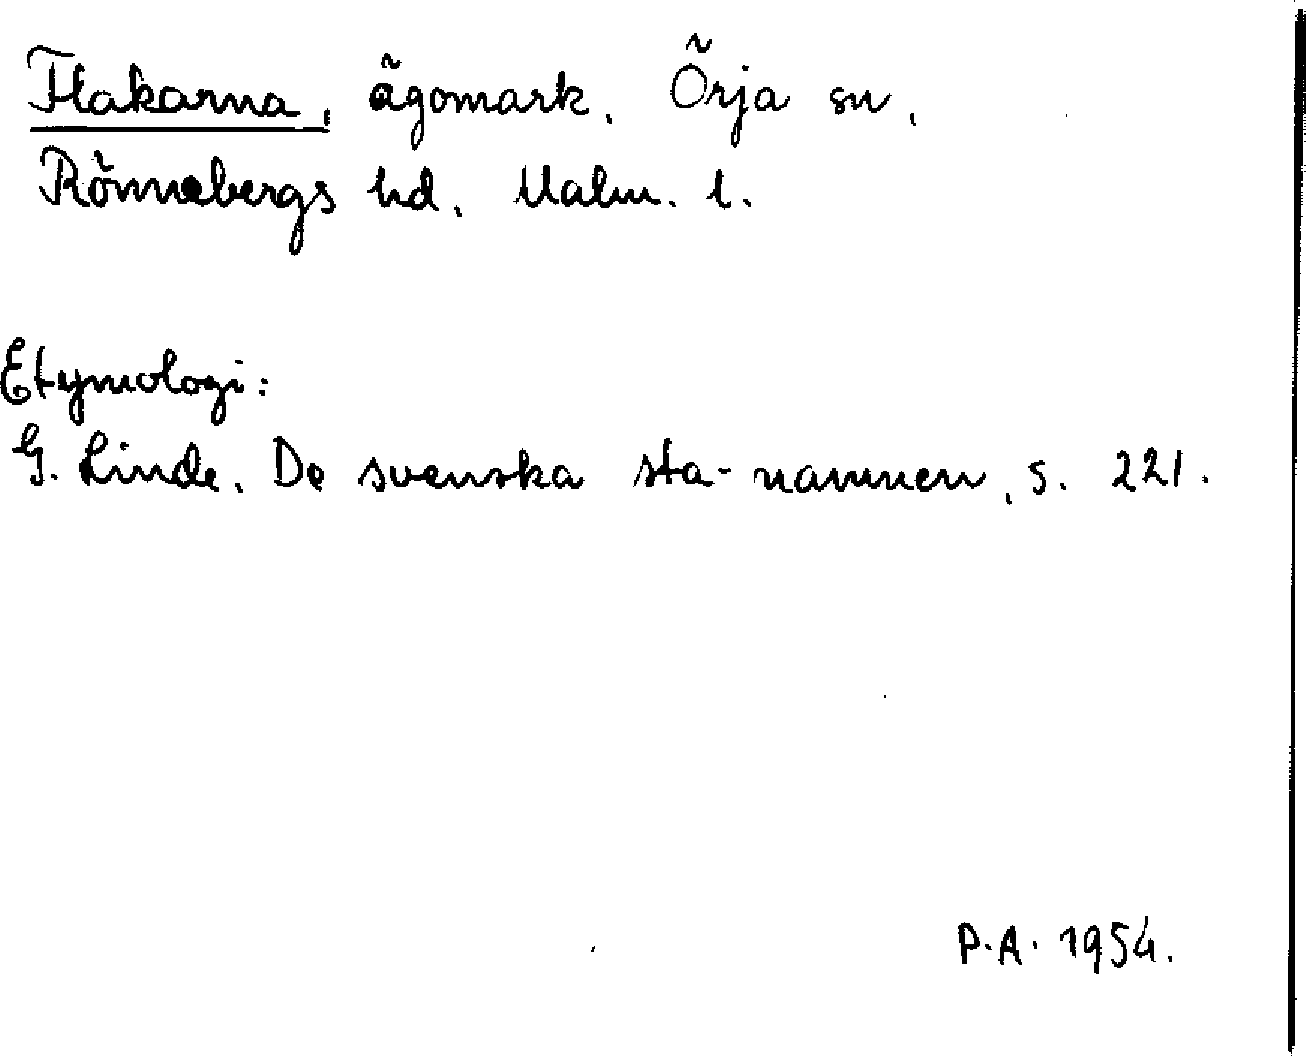 Flakarna, ägomark. Örja sn,
Rönnebergs hd, Malm. l.
Etymologi:
G. Linde, De svenska sta-namnen, s. 221.
P.A. 1954.